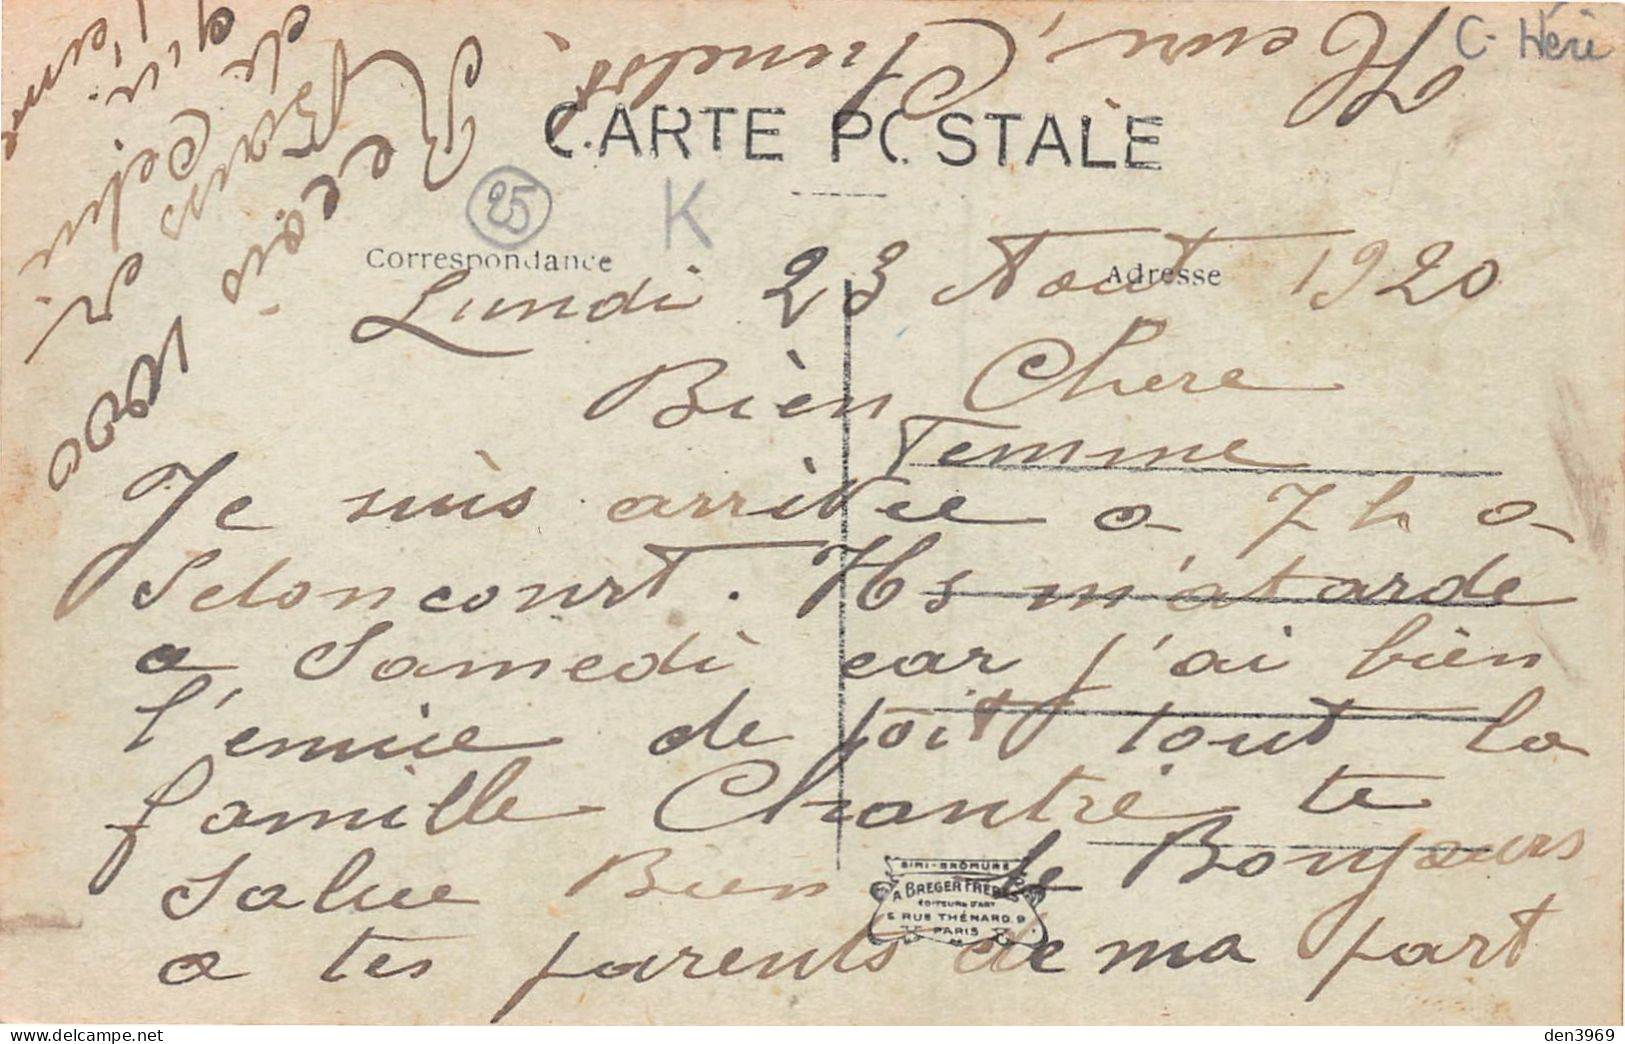 C. Héri
CARTE POSTALE
25
K
Correspondance
Adresse
Lundi 23 Aout 1920
Bièn Chere
Femme
Je suis arrivée a 7 h a
Seloncourt. Hs m'atarde
a Samedi car j'ai bièn
l'envie de joit tout la
famille Chantré te
Salue Bien le Bonjours
a tes parents de ma part
Recoi 1000
Baiss
de Celui
qui
t'aime
Henri, Chenelot.
SIRI-BROMURE
A. BREGER FRÈRES
ÉDITEURS D'ART
9 RUE THÉNARD 9
PARIS
den3969